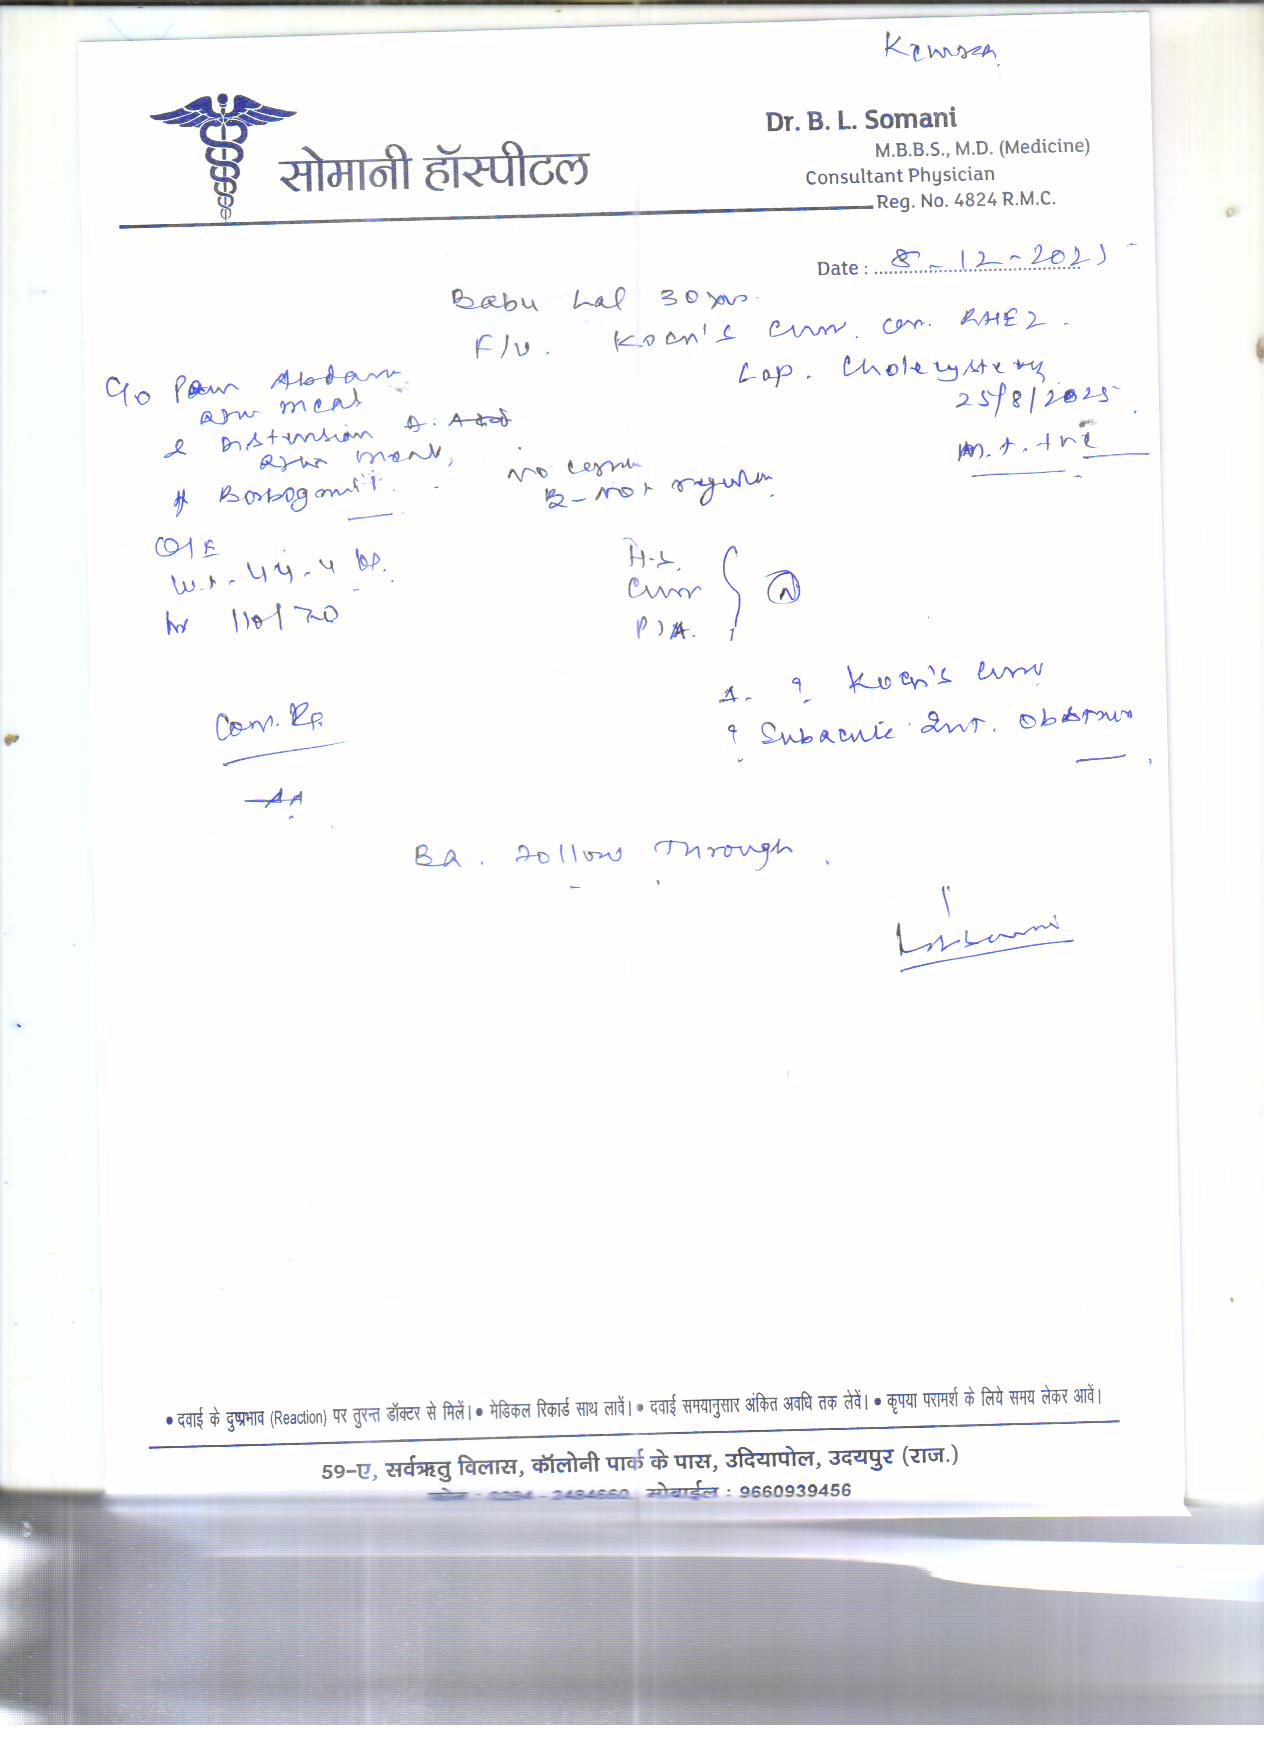 सोमानी हॉस्पीटल
Dr. B. L. Somani
M.B.B.S., M.D. (Medicine)
Consultant Physician
Reg. No. 4824 R.M.C.
Date : 8-12-2025
Babu Lal 30 yrs.
F/U. Koch's RHEZ.
Lap. Cholecystectomy
25/8/2025
M.T. +ve
C/o Pain Abdomen
after meal
Distension
after meal,
Borborygmi
B - Not regular
O/E
Wt - 44.4
110/70
H.S.
P/A. N
? Koch's
? Subacute Int. Obstruction
Ba. Follow Through
• दवाई के दुष्प्रभाव (Reaction) पर तुरन्त डॉक्टर से मिलें। • मेडिकल रिकार्ड साथ लावें। • दवाई समयानुसार अंकित अवधि तक लेवें। • कृपया परामर्श के लिये समय लेकर आवें।
59-ए, सर्वऋतु विलास, कॉलोनी पार्क के पास, उदियापोल, उदयपुर (राज.)
फोन : 0294 - 2484660 मोबाईल : 9660939456